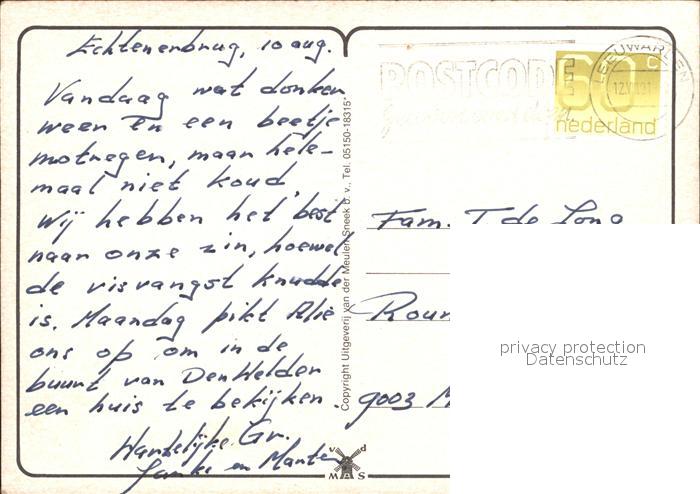 Echtenerbrug, 10 aug.
Vandaag wat donker
weer en een beetje
motregen, maar hele-
maal niet koud,
Wij hebben het best
naar onze zin, hoewel
de visvangst knudde
is. Maandag pikt Alie
ons op om in de
buurt van Den Helder
een huis te bekijken.
Hartelijke Gr.
en Marten
Copyright Uitgeverij van der Meulen Sneek b.v., Tel. 05150-18315*
v d
M A S
POSTCODE
60 c
nederland
LEEUWARDEN
Fam. T de Jong
9003
privacy protection
Datenschutz